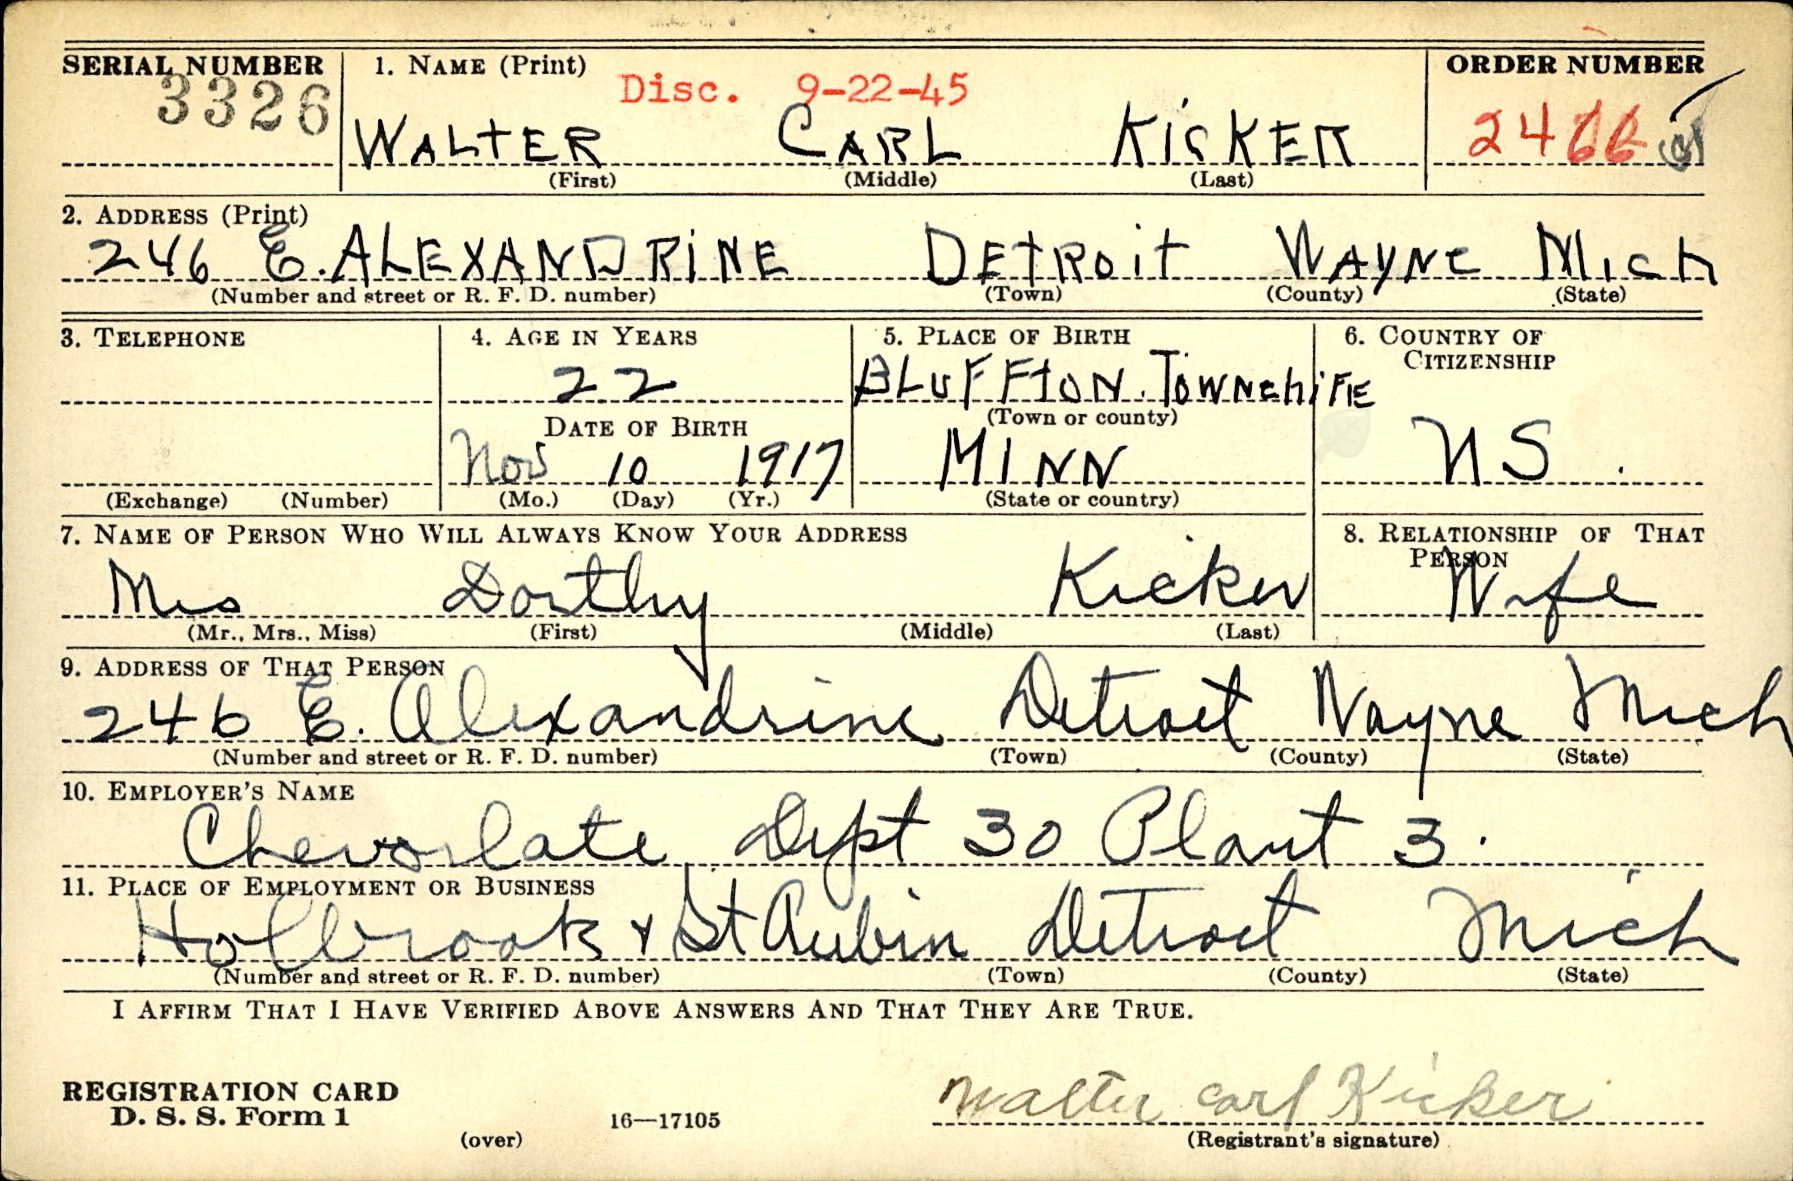 SERIAL NUMBER 1. NAME (Print) ORDER NUMBER
3326 Disc. 9-22-45
WALTER CARL KICKER
(First) (Middle) (Last)
2. ADDRESS (Print)
246 E. ALEXANDRINE DETROIT WAYNE MICH
(Number and street or R. F. D. number) (Town) (County) (State)
3. TELEPHONE 4. AGE IN YEARS 5. PLACE OF BIRTH 6. COUNTRY OF
CITIZENSHIP
22 BLUFFTON. TOWNSHIP
(Town or county)
DATE OF BIRTH
Nov 10 1917 MINN US.
(Exchange) (Number) (Mo.) (Day) (Yr.) (State or country)
7. NAME OF PERSON WHO WILL ALWAYS KNOW YOUR ADDRESS 8. RELATIONSHIP OF THAT
PERSON
Mrs Dorthy Kicker Wife
(Mr., Mrs., Miss) (First) (Middle) (Last)
9. ADDRESS OF THAT PERSON
246 E. Alexandrine Detroit Wayne Mich
(Number and street or R. F. D. number) (Town) (County) (State)
10. EMPLOYER'S NAME
Chevorlate Dept 30 Plant 3.
11. PLACE OF EMPLOYMENT OR BUSINESS
Holbrook & St Aubin Detroit Mich
(Number and street or R. F. D. number) (Town) (County) (State)
I AFFIRM THAT I HAVE VERIFIED ABOVE ANSWERS AND THAT THEY ARE TRUE.
REGISTRATION CARD
D. S. S. Form 1 16—17105 Walter Carl Kicker
(over) (Registrant's signature)